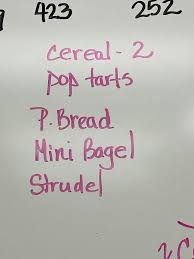 423 252
cereal - 2
pop tarts
P. Bread
Mini Bagel
Strudel